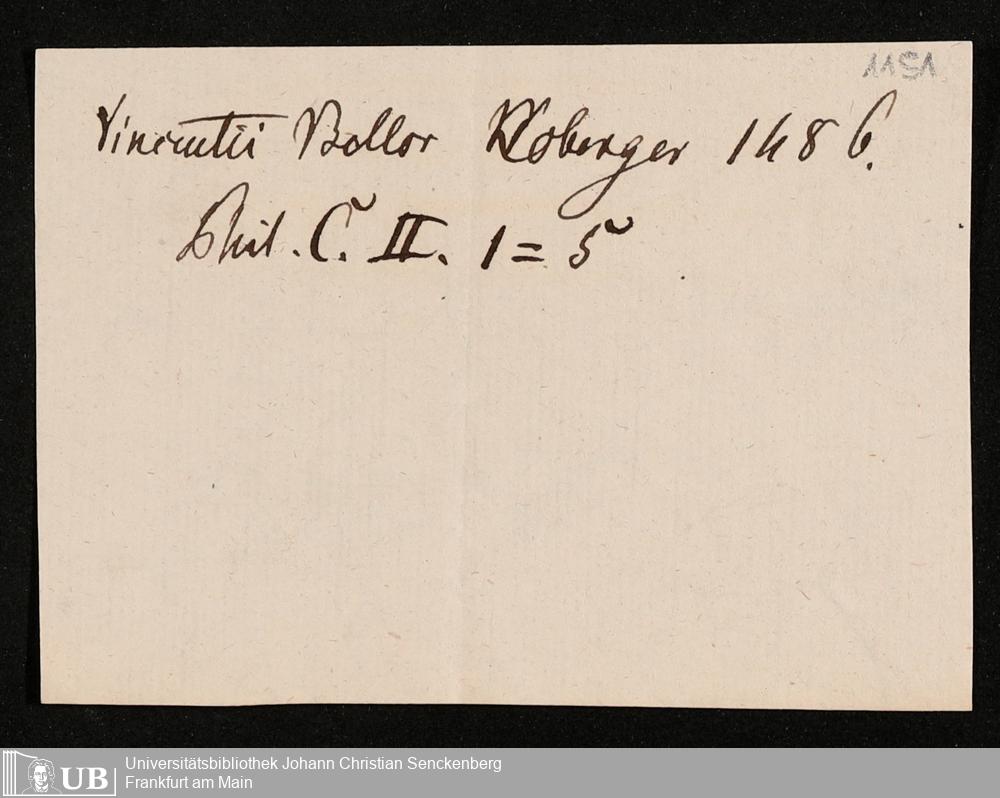 1151
Vincentii Bellov Koberger 1486.
Phil. C. II. 1=5
UB
Universitätsbibliothek Johann Christian Senckenberg
Frankfurt am Main